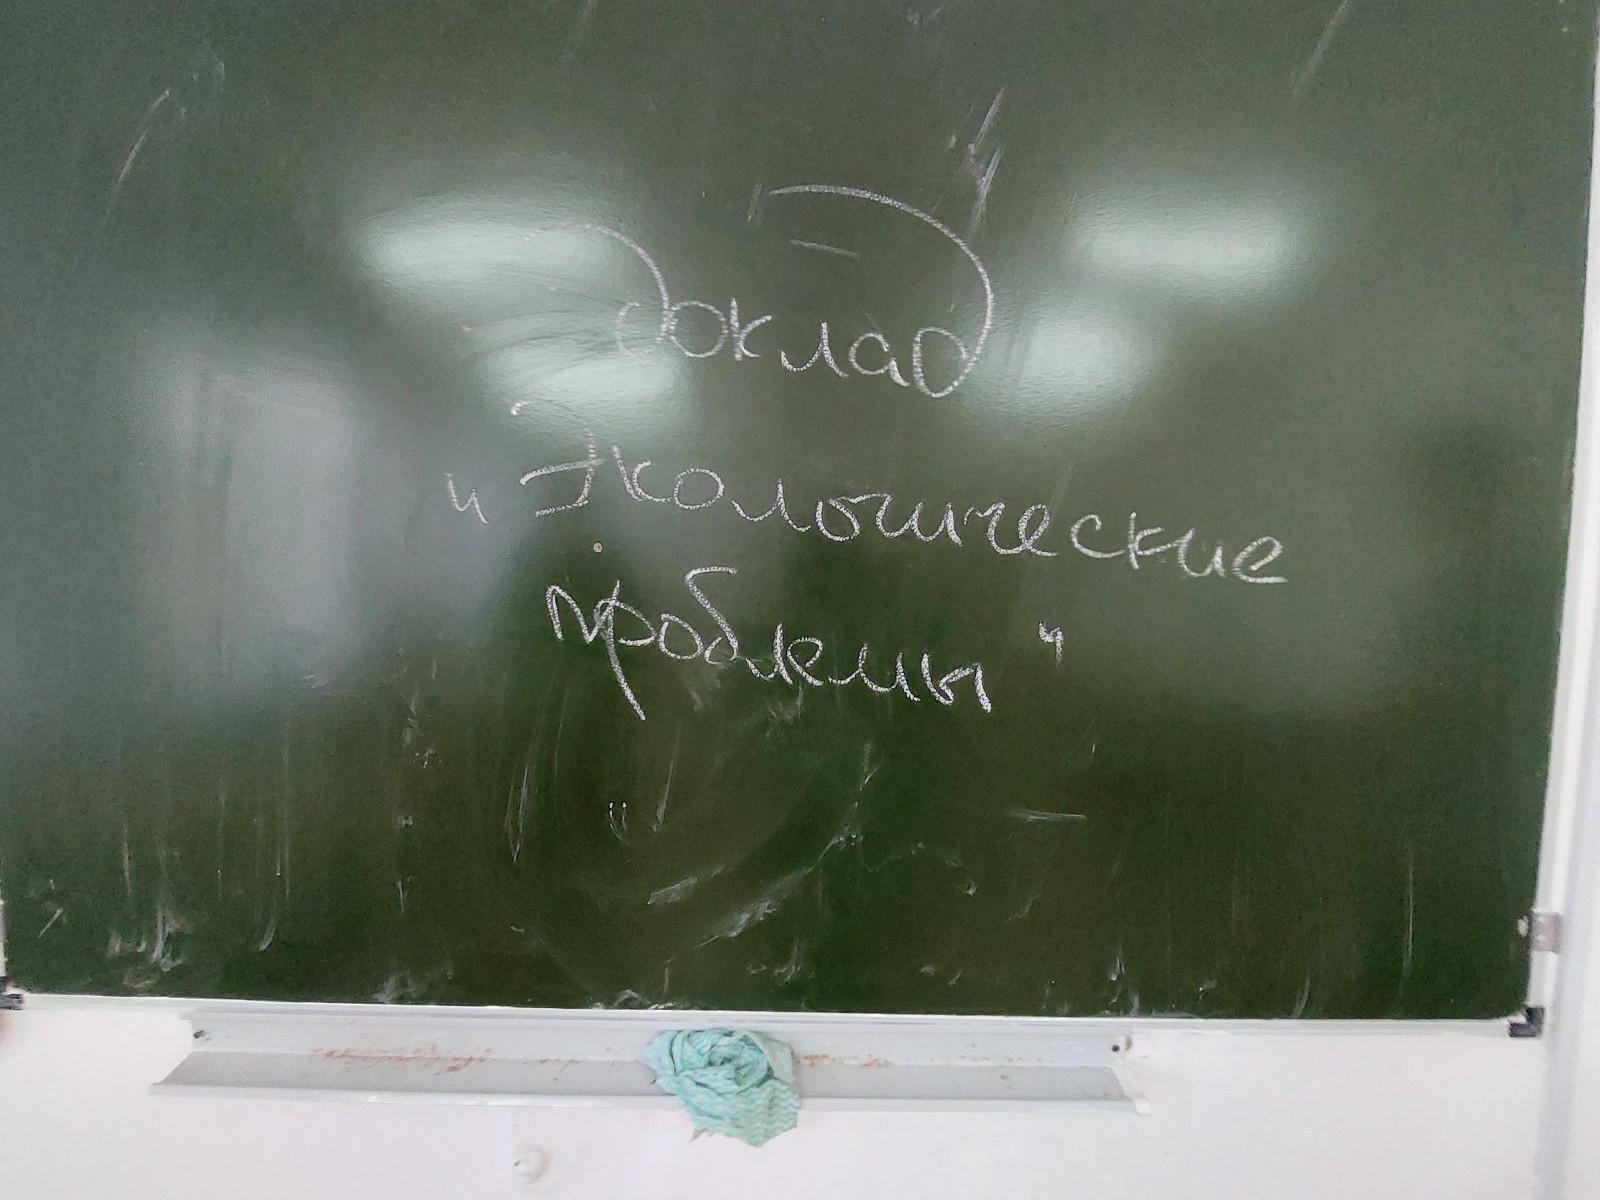 доклад
"Экологические
проблемы"